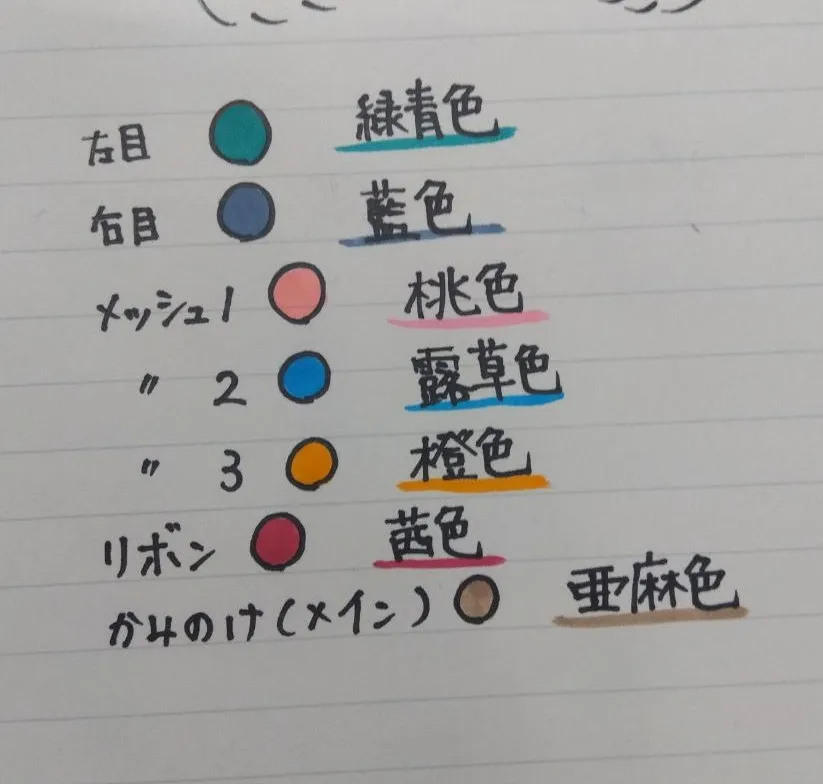 左目 緑青色
右目 藍色
メッシュ1 桃色
〃 2 露草色
〃 3 橙色
リボン 茜色
かみのけ(メイン) 亜麻色